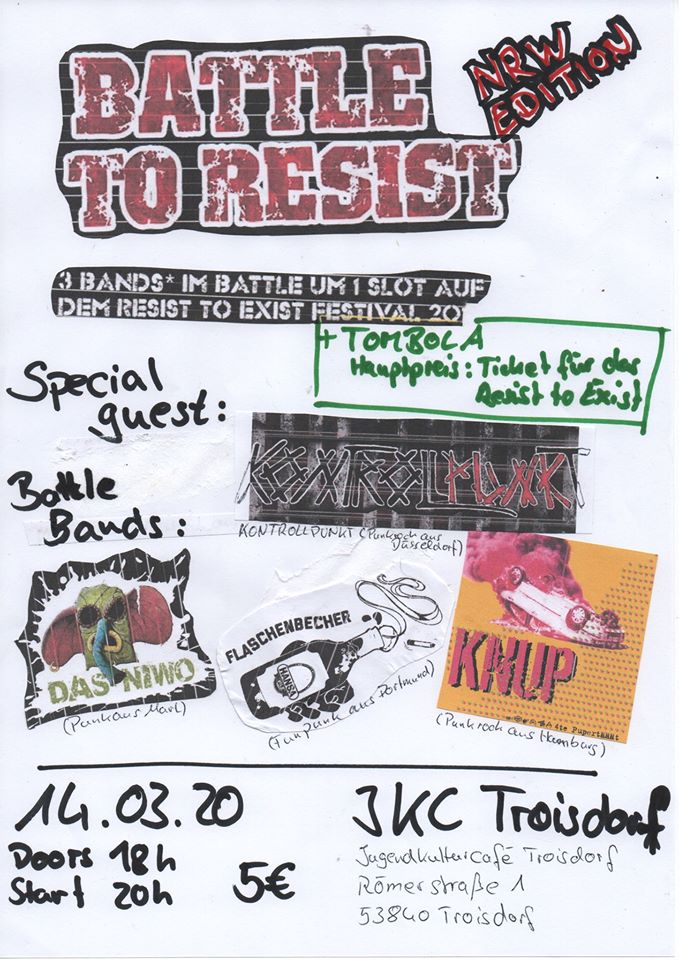 BATTLE
TO RESIST
NRW
EDITION
3 BANDS* IM BATTLE UM 1 SLOT AUF
DEM RESIST TO EXIST FESTIVAL 20
+ TOMBOLA
Hauptpreis: Ticket für das
Resist to Exist
Special
guest:
KONTROLLPUNKT
KONTROLLPUNKT (Punkrock aus
Düsseldorf)
Battle
Bands:
DAS NIWO
(Punk aus Marl)
FLASCHENBECHER
HANSA
(Funpunk aus Dortmund)
KNUP
(Punkrock aus Hamburg)
14.03.20
Doors 18h
Start 20h
5€
JKC Troisdorf
Jugendkulturcafé Troisdorf
Römerstraße 1
53840 Troisdorf